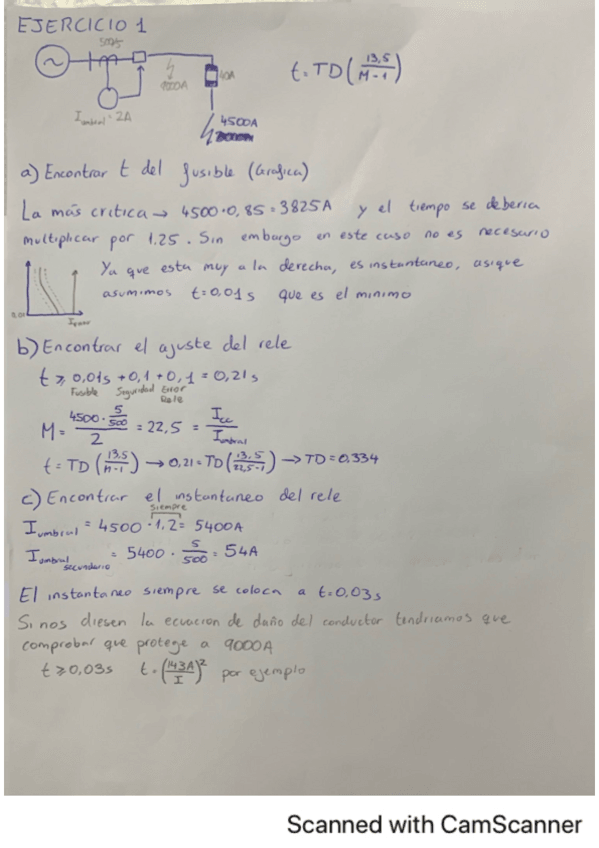 EJERCICIO 1
500/5
9000A
40A
I umbral = 2A
4500A
t = TD (13,5 / M-1)
a) Encontrar t del fusible (Grafica)
La más critica → 4500·0,85=3825A y el tiempo se deberia
multiplicar por 1.25. Sin embargo en este caso no es necesario
Ya que esta muy a la derecha, es instantaneo, asique
asumimos t=0,01s que es el minimo
0.01
b) Encontrar el ajuste del rele
t ≥ 0,01s + 0,1 + 0,1 = 0,21s
Fusible Seguridad Error Rele
M = (4500 · 5/500) / 2 = 22,5 = Icc / Iumbral
t = TD (13,5 / M-1) → 0,21 = TD (13,5 / 22,5-1) → TD = 0.334
c) Encontrar el instantaneo del rele
siempre
I umbral = 4500 · 1,2 = 5400A
I umbral secundario = 5400 · 5/500 = 54A
El instantaneo siempre se coloca a t=0,03s
Si nos diesen la ecuacion de daño del conductor tendriamos que
comprobar que protege a 9000A
t ≥ 0,03s t = (143A / I)² por ejemplo
Scanned with CamScanner